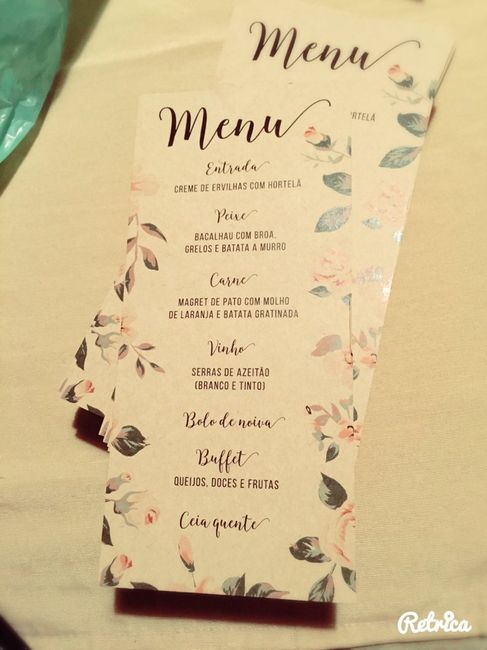 Menu
Menu
HORTELÃ
Entrada
CREME DE ERVILHAS COM HORTELÃ
Peixe
BACALHAU COM BROA,
GRELOS E BATATA A MURRO
Carne
MAGRET DE PATO COM MOLHO
DE LARANJA E BATATA GRATINADA
Vinho
SERRAS DE AZEITÃO
(BRANCO E TINTO)
Bolo de noiva
Buffet
QUEIJOS, DOCES E FRUTAS
Ceia quente
Retrica